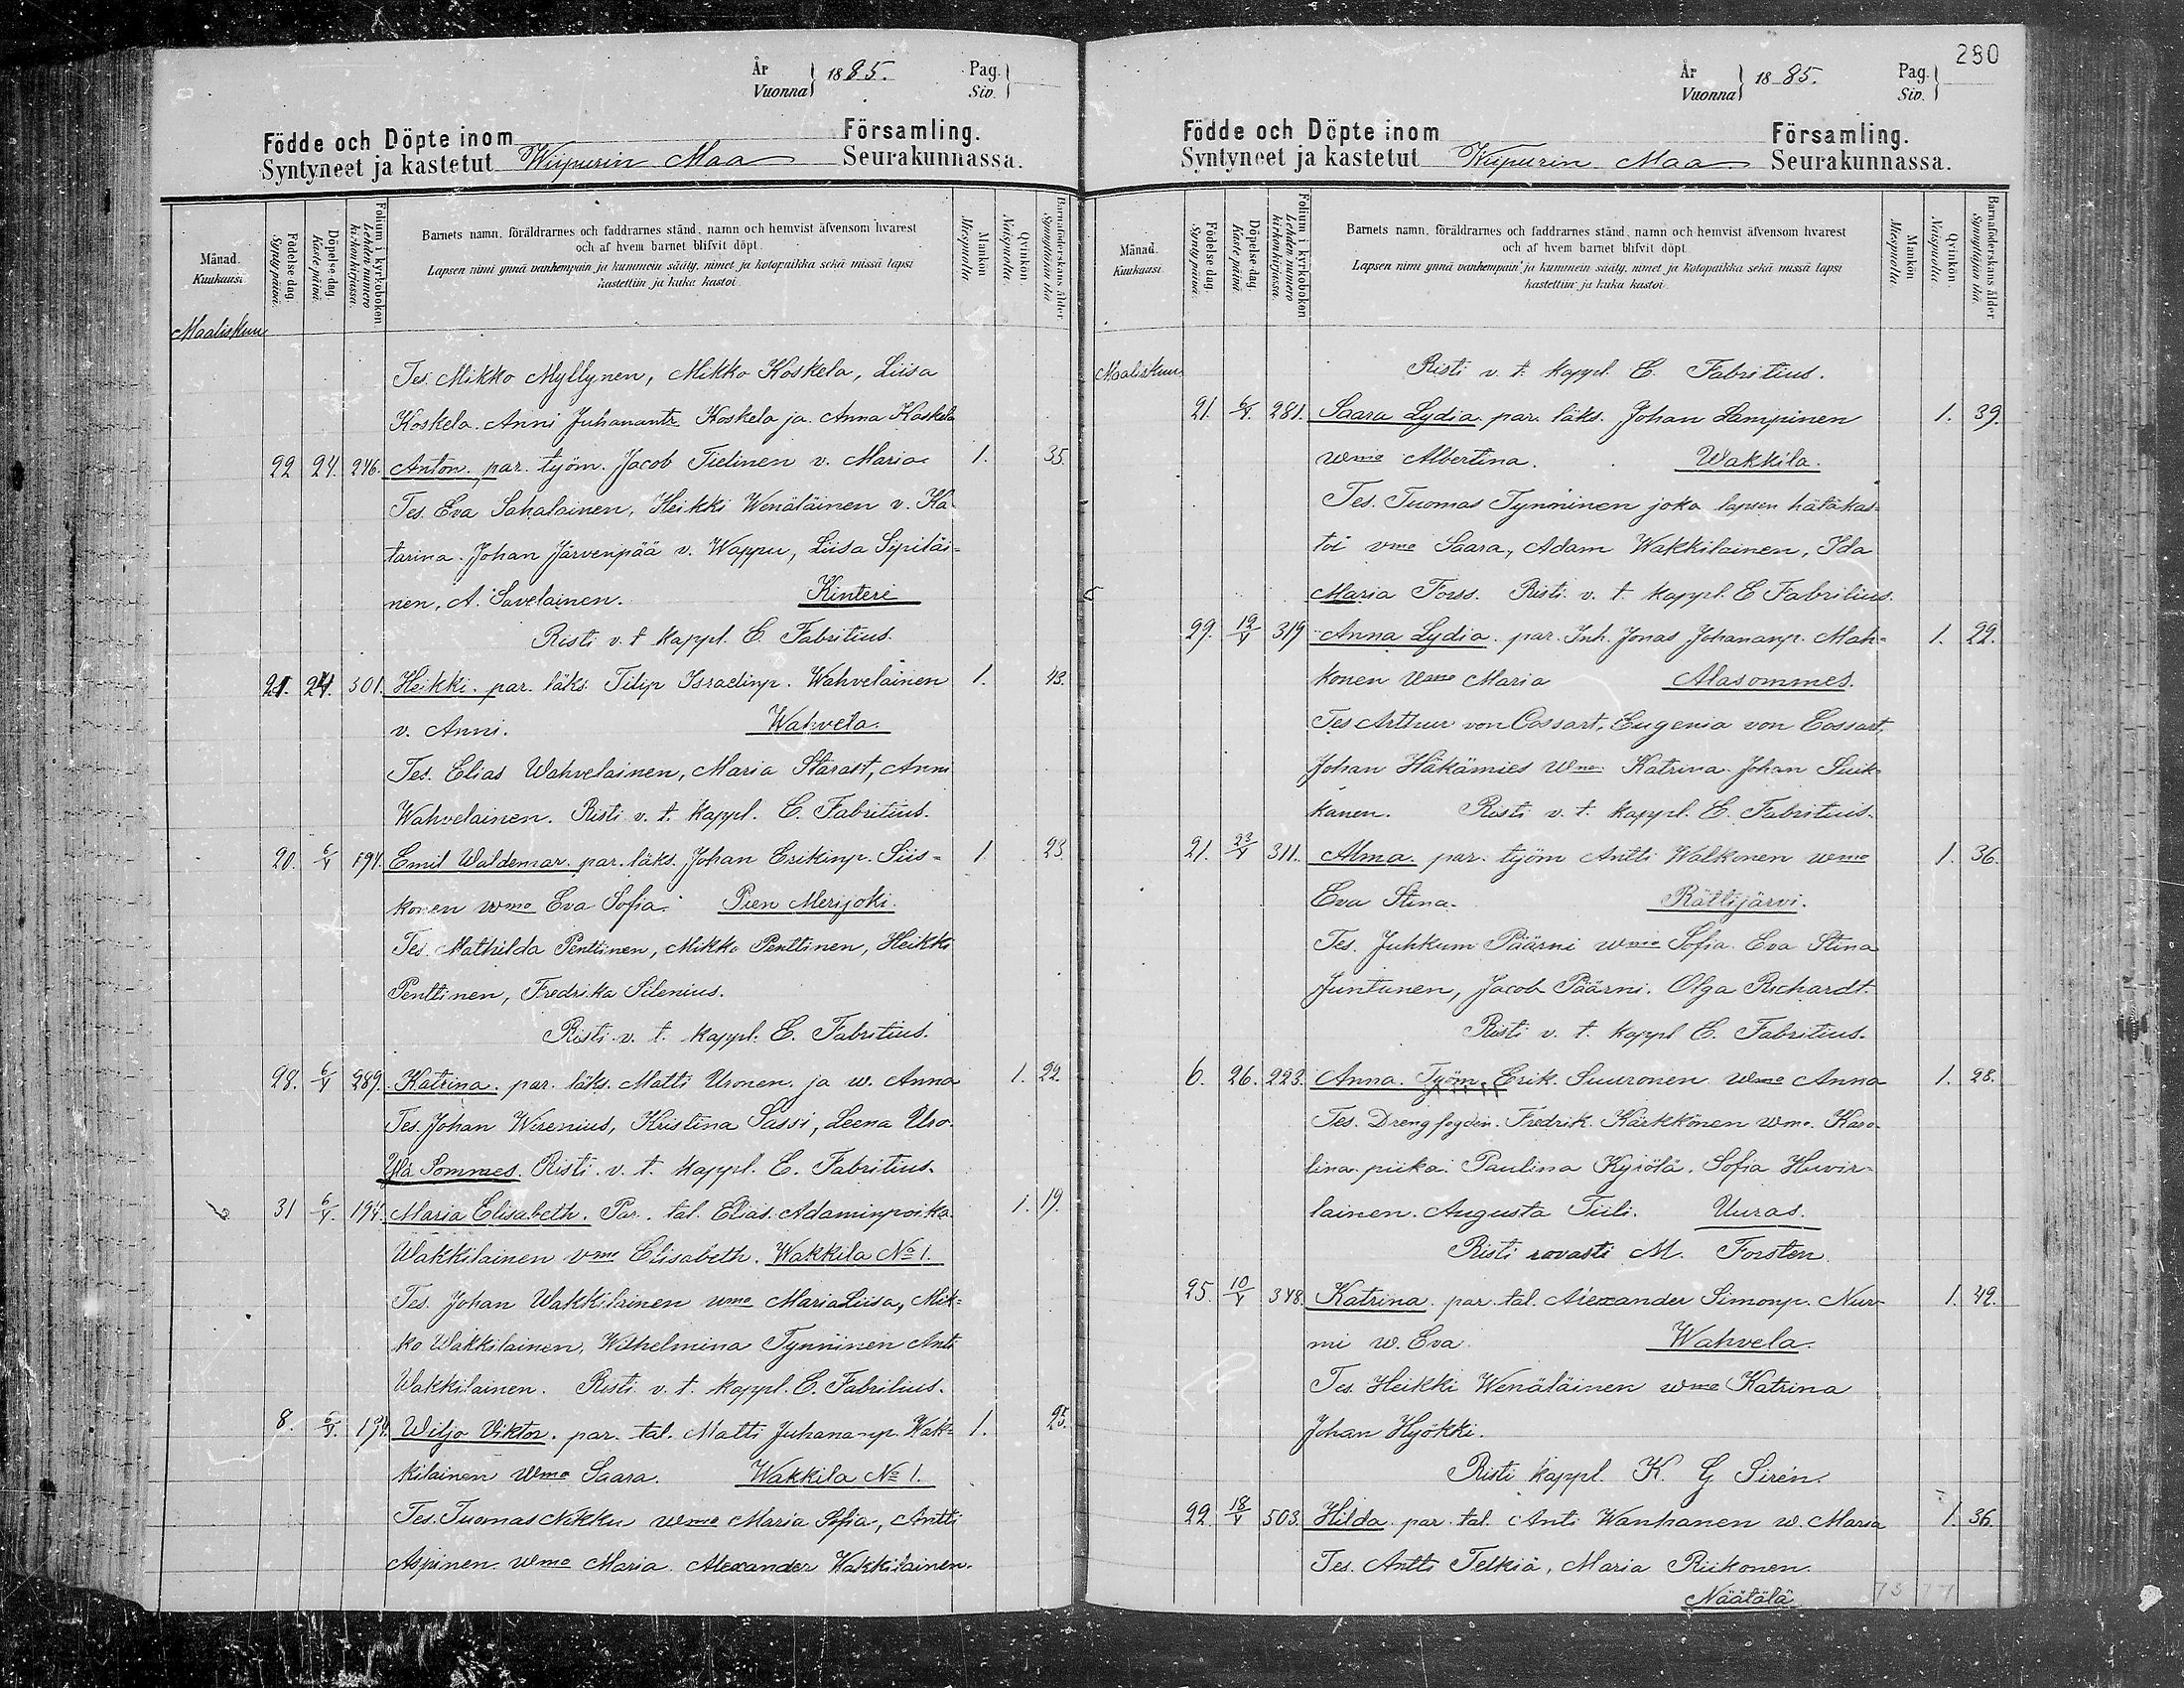 År
Vuonna } 1885.
Pag.
Siv.
Födde och Döpte inom
Församling.
Syntyneet ja kastetut Wiipurin Maa Seurakunnassa.
Månad.
Kuukausi.
Födelse-dag.
Synty-päivä.
Döpelse-dag.
Kaste-päivä.
Folium i kyrkoboken
Lehden numero
kirkonkirjassa.
Barnets namn, föräldrarnes och faddrarnes stånd, namn och hemvist äfvensom hvarest
och af hvem barnet blifvit döpt.
Lapsen nimi ynnä vanhempain ja kummein sääty, nimet ja kotopaikka sekä missä lapsi
kastettiin ja kuka kastoi.
Mankön.
Miespuolta.
Qvinkön.
Naispuolta.
Barnaföderskans ålder
Synnyttäjän ikä
Maaliskuu
Tes. Mikko Myllynen, Mikko Koskela, Liisa
Koskela. Anni Juhanantr. Koskela ja Anna Koskela
22 24. 276. Anton. par. työm. Jacob Tielinen v. Maria 1. 35.
Tes. Eva Sahalainen, Heikki Wenäläinen v. Ka-
tarina. Johan Järvenpää v. Wappu, Liisa Sipiläi=
nen, A. Savelainen. Kintere
Risti v. t. kappl. E. Fabritius.
21. 24. 301. Heikki. par. läks. Filip Israelinp. Wahvelainen 1. 43.
v. Anni. Wahvela.
Tes. Elias Wahvelainen, Maria Starast, Anni
Wahvelainen. Risti v. t. kappl. E. Fabritius.
20. 6/V 194. Emil Waldemar. par. läks. Johan Erikinp. Siis= 1. 23.
konen wmo Eva Sofia. Pien Merijoki.
Tes. Mathilda Penttinen, Mikko Penttinen, Heikki
Penttinen, Fredrika Silenius.
Risti v. t. kappl. E. Fabritius.
28. 6/V 289. Katrina. par. läks. Matti Uronen. ja w. Anna 1. 22.
Tes. Johan Wirenius, Kristina Sassi, Leena Uro.
Ylä Sommes. Risti v. t. kappl. E. Fabritius.
31 6/V. 194. Maria Elisabeth. Par. tal. Elias Adaminpoika 1. 19.
Wakkilainen vmo Elisabeth. Wakkila No 1.
Tes. Johan Wakkilainen wmo Maria Liisa, Mik=
ko Wakkilainen, Wilhelmina Tynninen Anti
Wakkilainen. Risti v. t. kappl. E. Fabritius.
8. 6/V. 194. Wiljo Viktor. par. tal. Matti Juhananp. Wak= 1. 25.
kilainen Wmo Saara. Wakkila No 1.
Tes. Tuomas Nikku wmo Maria Sofia, Antti
Aspinen wmo Maria. Alexander Wakkilainen.
280
År
Vuonna } 1885.
Pag.
Siv.
Födde och Döpte inom
Församling.
Syntyneet ja kastetut Wiipurin Maa Seurakunnassa.
Månad.
Kuukausi.
Födelse-dag.
Synty-päivä.
Döpelse-dag.
Kaste-päivä
Folium i kyrkoboken
Lehden numero
kirkonkirjassa.
Barnets namn, föräldrarnes och faddrarnes stånd, namn och hemvist äfvensom hvarest
och af hvem barnet blifvit döpt.
Lapsen nimi ynnä vanhempain ja kummein sääty, nimet ja kotopaikka sekä missä lapsi
kastettiin ja kuka kastoi.
Mankön.
Miespuolta.
Qvinkön.
Naispuolta.
Barnaföderskans ålder
Synnyttäjän ikä
Maaliskuu.
Risti v. t. kappl. E. Fabritius.
21. 6/V. 281. Saara Lydia. par. läks. Johan Lampinen 1. 39.
wmo Albertina. Wakkila.
Tes. Tuomas Tynninen joka lapsen hätäkas=
toi vmo Saara, Adam Wakkilainen, Ida
Maria Forss. Risti v. t. kappl. E Fabritius.
29. 12/V 319 Anna Lydia. par. Inh. Jonas Johananp. Mah= 1. 22.
konen Wmo Maria Alasommes.
Tes Arthur von Cossart, Eugenia von Cossart,
Johan Häkämies Wmo Katrina. Johan Suik-
kanen. Risti v. t. kappl. E. Fabritius.
21. 23/V 311. Alma. par. työm Antti Walkonen wmo 1. 36.
Eva Stina. Rättijärvi.
Tes. Juhkum Päärni wmo Sofia. Eva Stina
Juntunen, Jacob Päärni. Olga Richardt.
Risti v. t. kappl E. Fabritius.
6. 26. 223. Anna. Työm. Erik. Suuronen wmo Anna 1. 28.
Tes. Drengfogden. Fredrik. Kärkkönen wmo. Karo-
lina. piika. Paulina Kyiölä. Sofia Huvir-
lainen. Augusta Tiili. Uuras.
Risti rovasti M. Forsten.
25. 10/V 348. Katrina. par. tal. Alexander Simonp. Nur- 1. 42.
mi w. Eva. Wahvela.
Tes. Heikki Wenäläinen wmo Katrina
Johan Hyökki.
Risti kappl. K. G Sirén.
22. 18/V 503. Hilda. par. tal. Anti Wanhanen w. Maria 1. 36.
Tes. Antti Telkiä, Maria Riikonen.
Näätälä